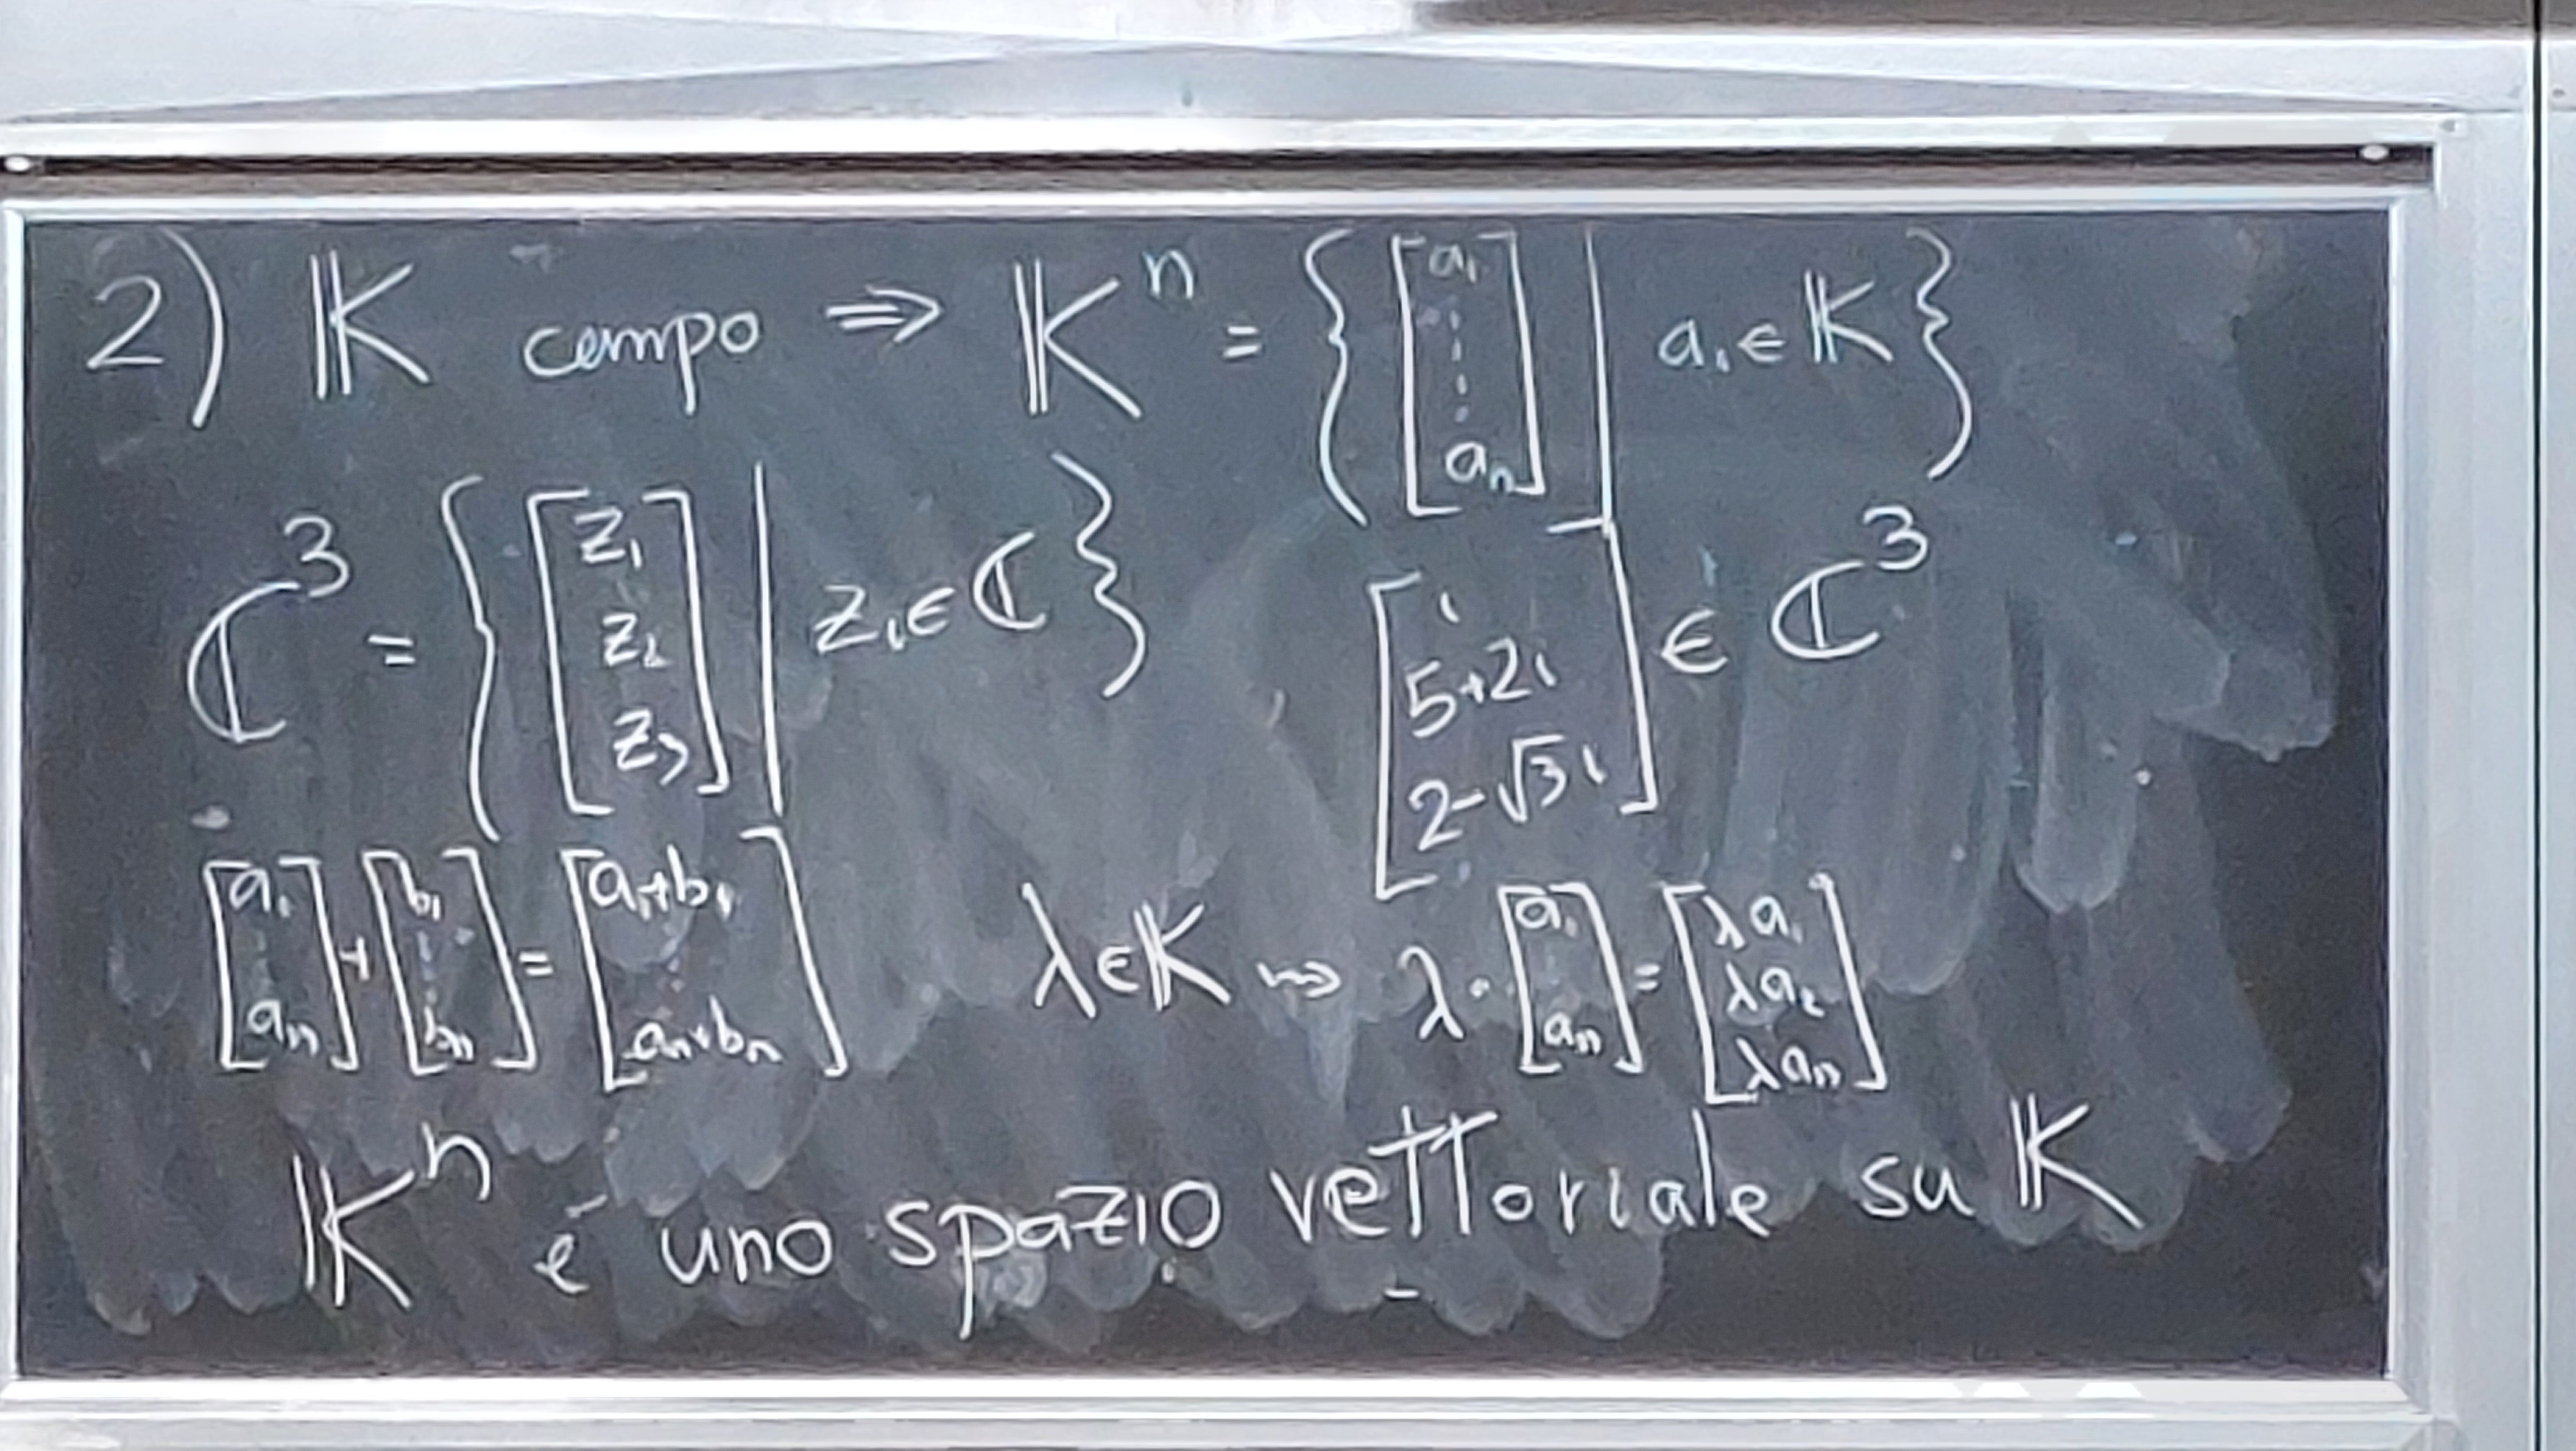 2) 𝕂 campo ⇒ 𝕂ⁿ = { [a₁ ⋮ aₙ] | aᵢ ∈ 𝕂 }
ℂ³ = { [z₁ z₂ z₃] | zᵢ ∈ ℂ } [i 5+2i 2-√3i] ∈ ℂ³
[a₁ ⋮ aₙ] + [b₁ ⋮ bₙ] = [a₁+b₁ ⋮ aₙ+bₙ] λ ∈ 𝕂 ⇝ λ · [a₁ ⋮ aₙ] = [λa₁ λa₂ λaₙ]
𝕂ⁿ è uno spazio vettoriale su 𝕂